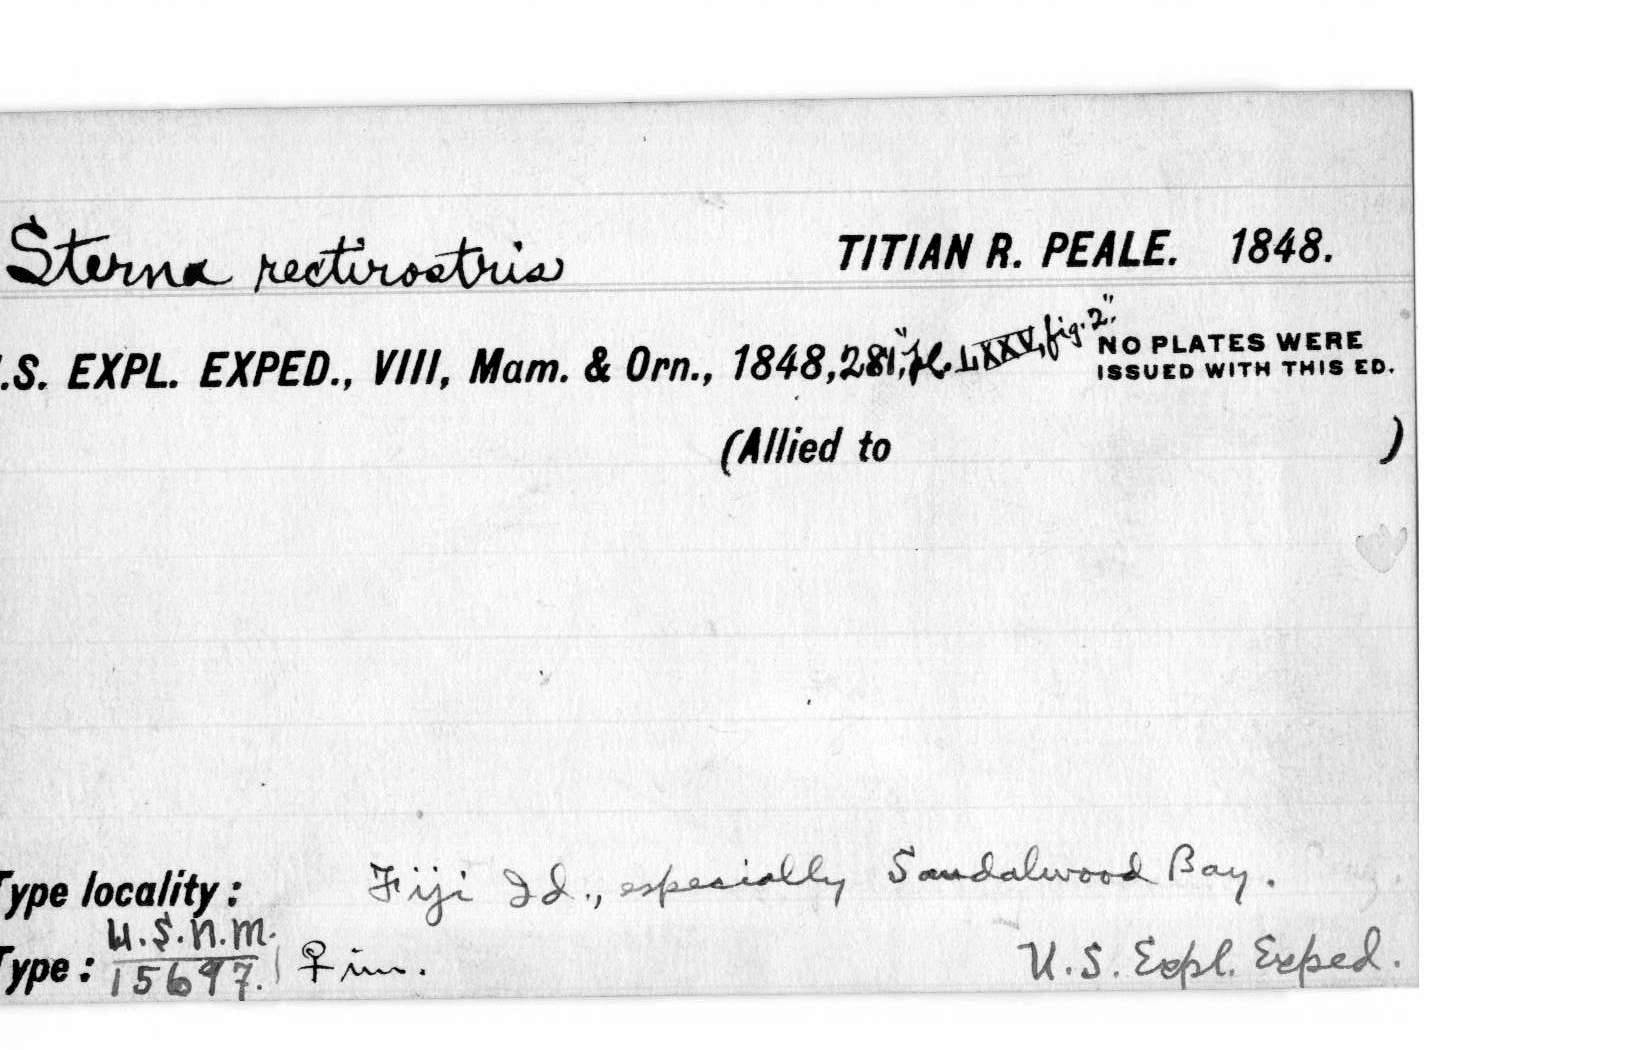 Sterna rectirostris TITIAN R. PEALE. 1848.
.S. EXPL. EXPED., VIII, Mam. & Orn., 1848, 281, "pl. LXXV, fig. 2." NO PLATES WERE
ISSUED WITH THIS ED.
(Allied to )
Type locality: Fiji Id., especially Sandalwood Bay.
U.S.N.M.
Type: 15697. ♀ im. U.S. Expl. Exped.